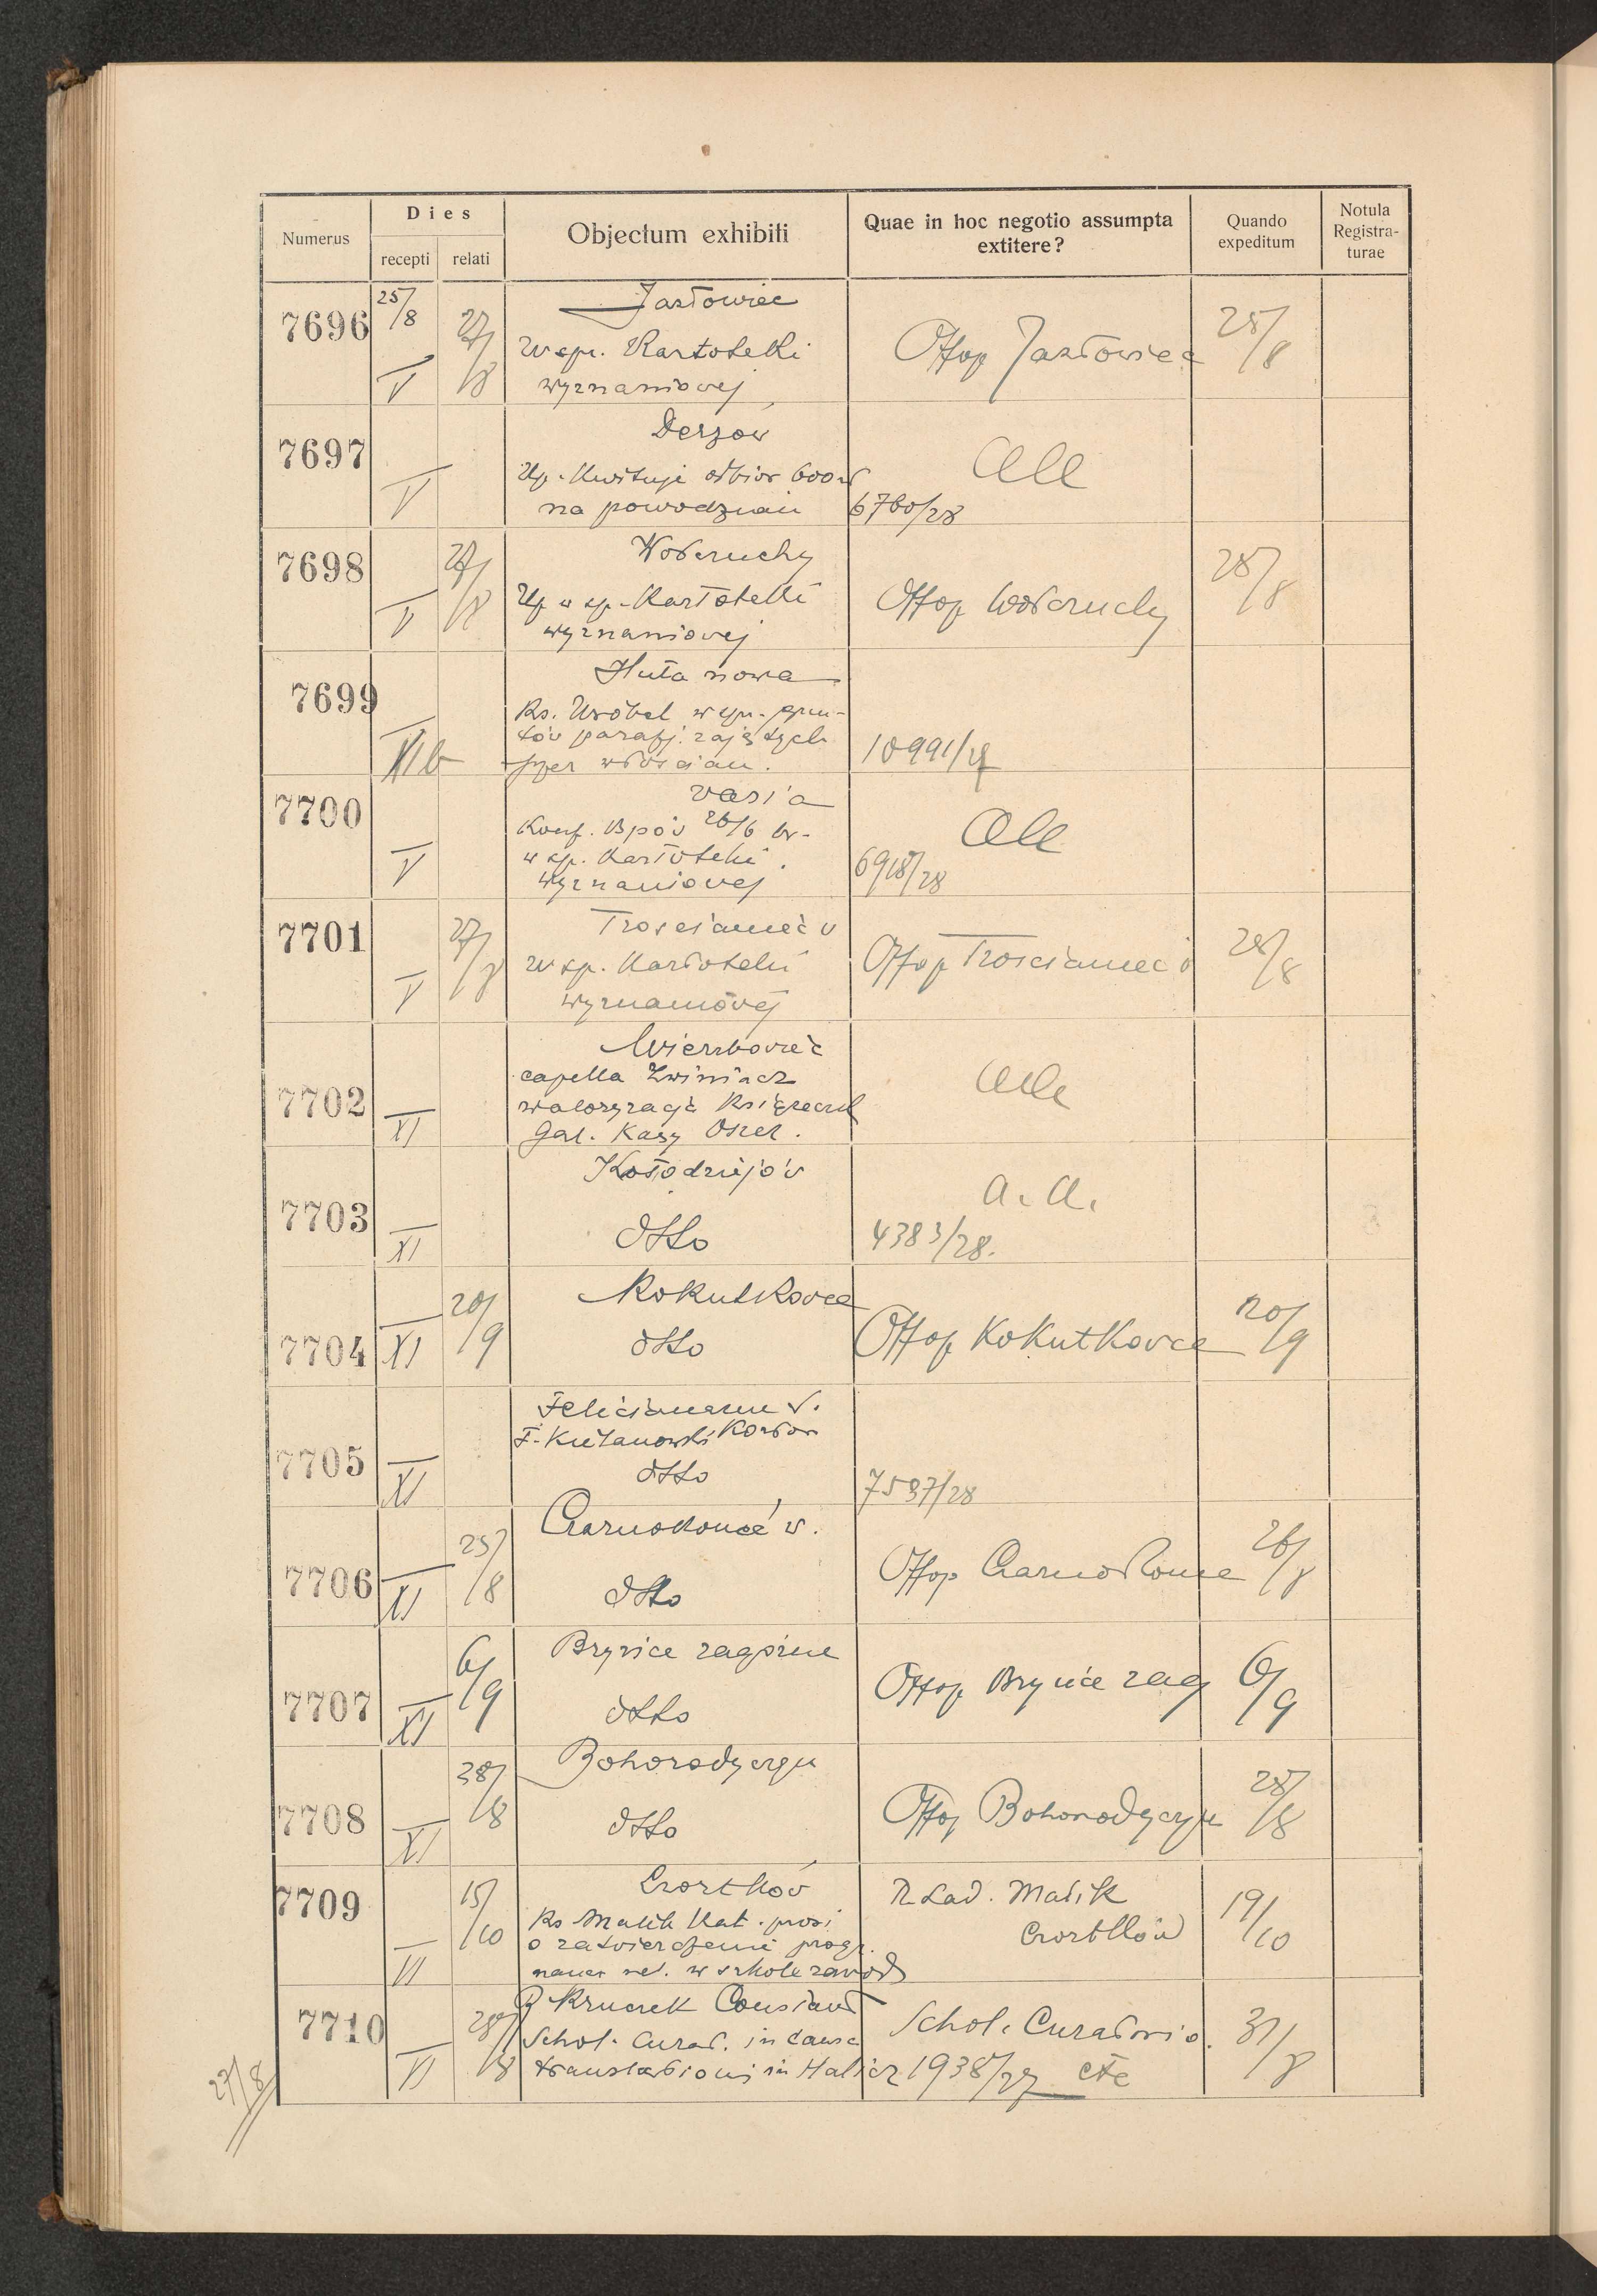 Numerus
Dies
recepti
relati
Objectum exhibiti
Quae in hoc negotio assumpta
extitere?
Quando
expeditum
Notula
Registra-
turae
7696
25/8
V
27/8
Jazłowiec
W spr. Kartoteki
wyznaniowej
Offop Jazłowiec
28/8
7697
V
Derzów
Up. Kwituje odbiór 600 zł
na powodzian
All
6760/28
7698
V
27/8
Wołczuchy
Up w sp. Kartoteki
wyznaniowej
Offop Wołczuchy
28/8
7699
XI b
Huta nowa
Ks. Wróbel w spr. grun-
tów parafj. zajętych
przez włościan.
10991/27
7700
V
varia
Konf. Bpów 26/6 br.
w sp. Kartoteki
wyznaniowej
All
6918/28
7701
V
27/8
Trościaniec
W sp. Kartoteki
wyznaniowej
Offop Trościaniec
28/8
7702
XI
Wierzbowiec
capella Zwiniacz
waloryzacja Książeczek
Gal. Kasy Oszcz.
All
7703
XI
Kołodziejów
dtto
a. a.
4383/28.
7704
XI
20/9
Kokutkowce
dtto
Offop Kokutkowce
20/9
7705
XI
dtto
7597/28
7706
XI
25/8
Czarnokońce w.
dtto
Offop Czarnokońce
26/8
7707
XI
6/9
Bryńce zagórne
dtto
Offop Bryńce zag
6/9
7708
XI
28/8
Bohorodyczyn
dtto
Offop Bohorodyczyn
28/8
7709
VI
15/10
Czortków
Ks Malik Kat. prosi
o zatwierdzenie progr.
naucz rel. w szkole zawod
R. Lad. Malik
Czortków
19/10
7710
VI
28/8
Kruczek Constant
Schol. Curat. in causa
translationis in Halicz
Schol. Curatorio.
1938/27 etc
31/8
27/8